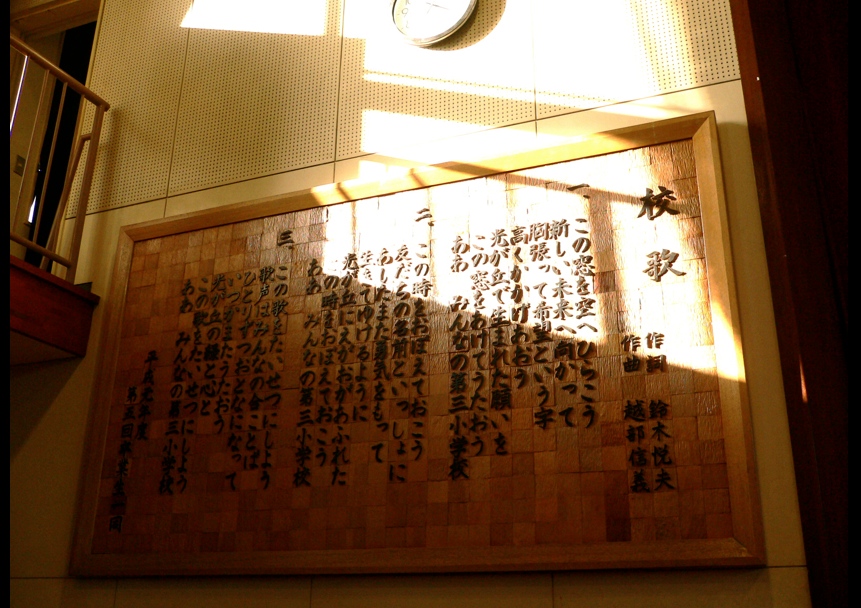 校歌
作詞 鈴木悦夫
作曲 越部信義
一、この窓を空へひらこう
新しい未来へ向かって
胸張って希望という字
高くかかげおおう
光が丘で生まれた願いを
この窓をあけてうたおう
ああ みんなの第三小学校
二、この時をおぼえておこう
友だちの名前といっしょに
あしたまた勇気をもって
生きてゆけるように
光が丘にえがおがあふれた
この時をおぼえておこう
ああ みんなの第三小学校
三、この歌をたいせつにしよう
歌声はみんなの合ことば
ひとりずつおとなになって
いつかまたうたおう
光が丘の緑と心と
この歌をたいせつにしよう
ああ みんなの第三小学校
平成元年度
第五回卒業生一同